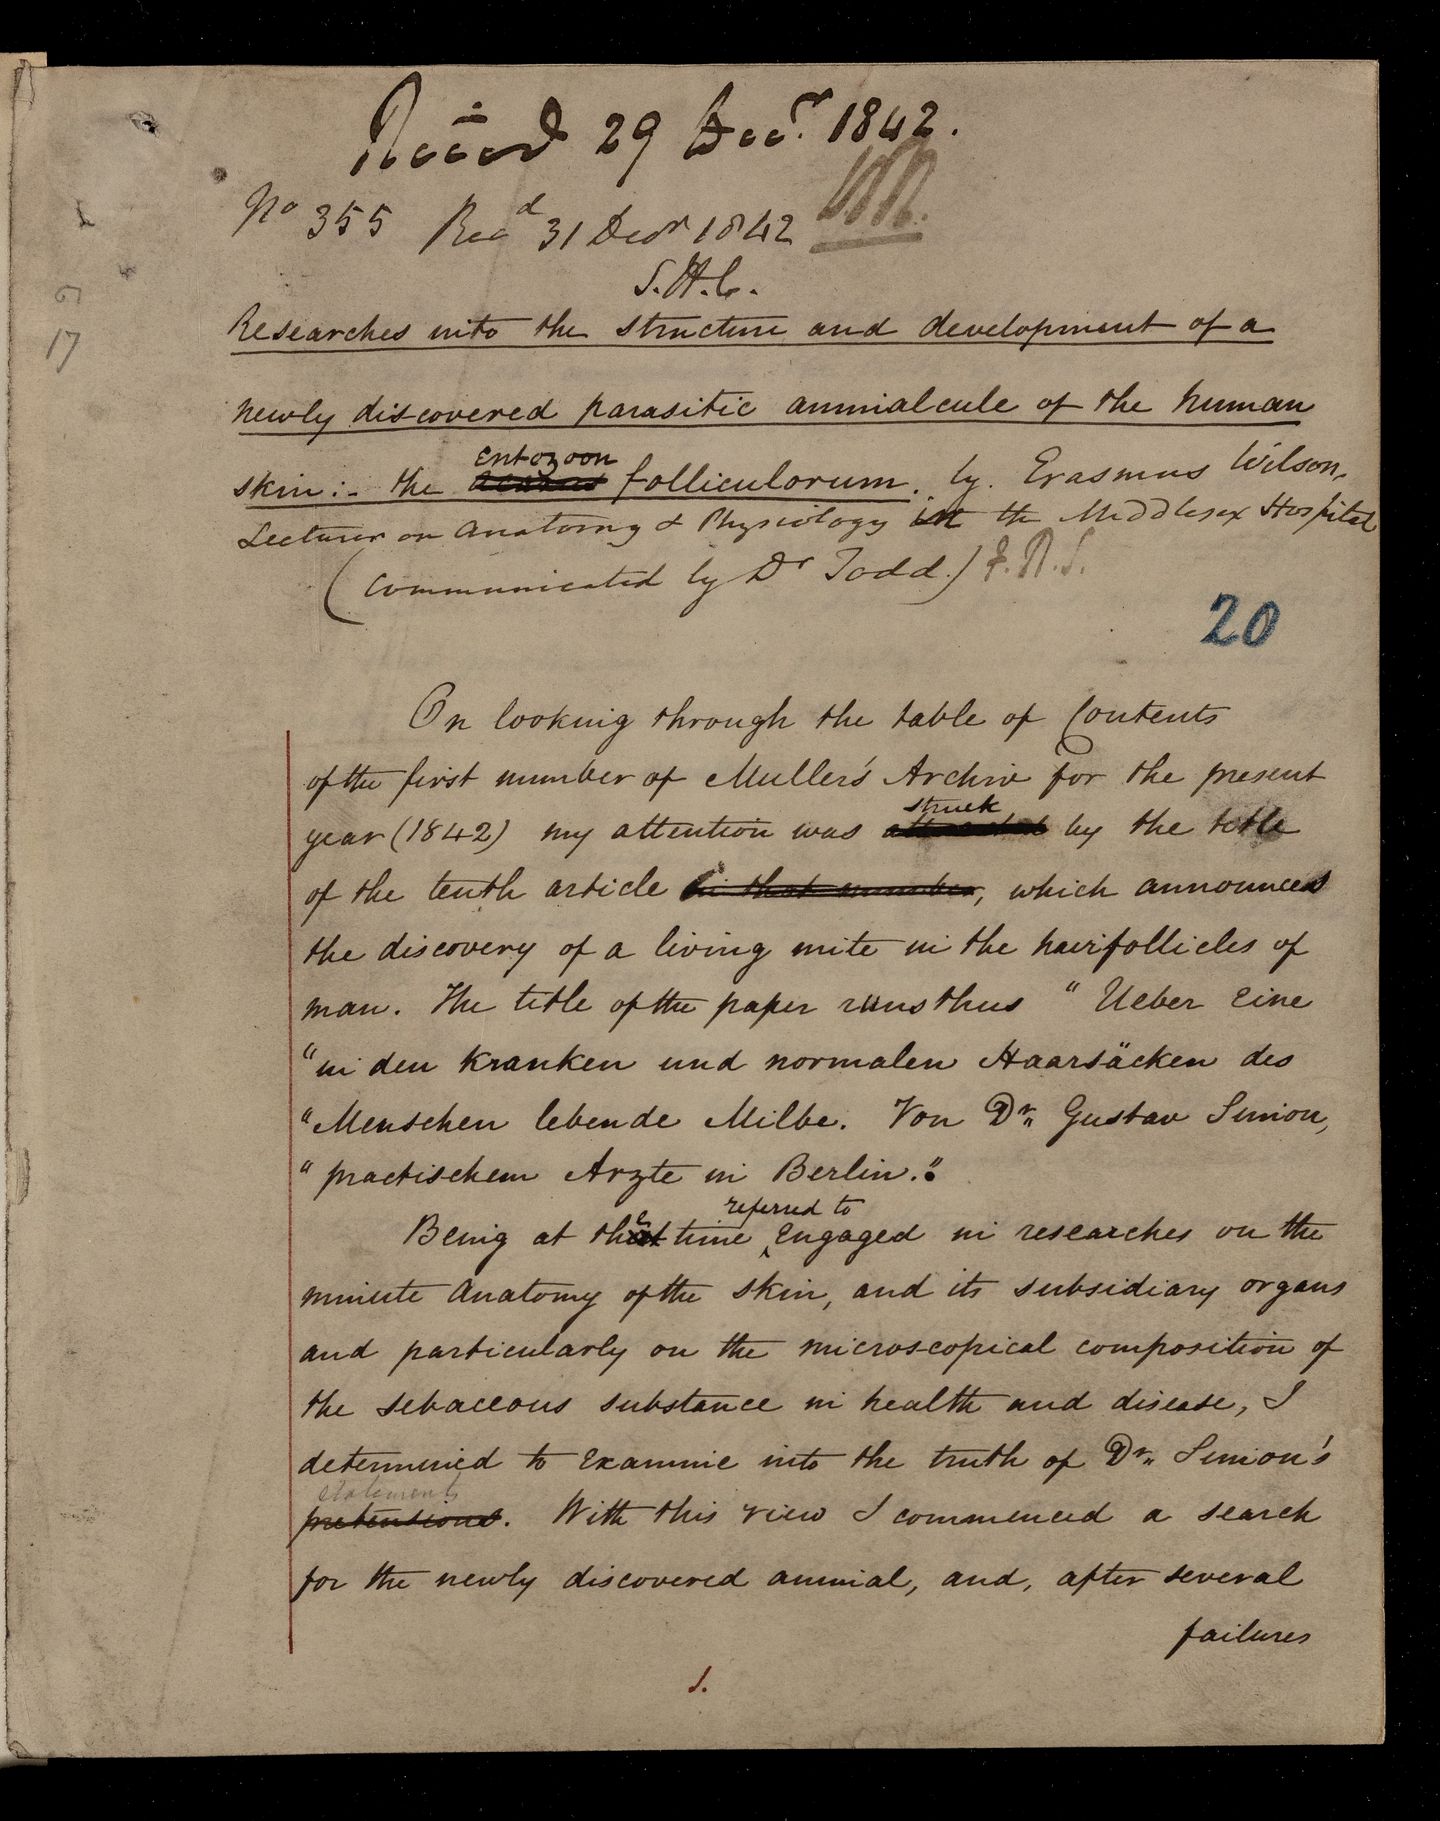 Received 29 Decr. 1842.
No 355 Recd 31 Decr 1842
S.H.C.
17
Researches into the structure and development of a
newly discovered parasitic animalcule of the human
entozoon
skin:- the acarus folliculorum. by. Erasmus Wilson.
Lecturer on Anatomy & Physiology in the Middlesex Hospital
(Communicated by Dr Todd.) F.R.S.
20
On looking through the table of Contents
of the first number of Muller's Archiv for the present
struck
year (1842) my attention was attracted by the title
of the tenth article in that number, which announced
the discovery of a living mite in the hair follicles of
man. The title of the paper runs thus " Ueber Eine
" in den kranken und normalen Haarsäcken des
" Menschen lebende Milbe. Von Dr. Gustav Simon,
" practischem Arzte in Berlin."
referred to
Being at the time Engaged in researches on the
minute Anatomy of the skin, and its subsidiary organs
and particularly on the microscopical composition of
the sebaceous substance in health and disease, I
determined to Examine into the truth of Dr. Simon's
statements
pretensions. With this view I commenced a search
for the newly discovered animal, and, after several
failures
1.